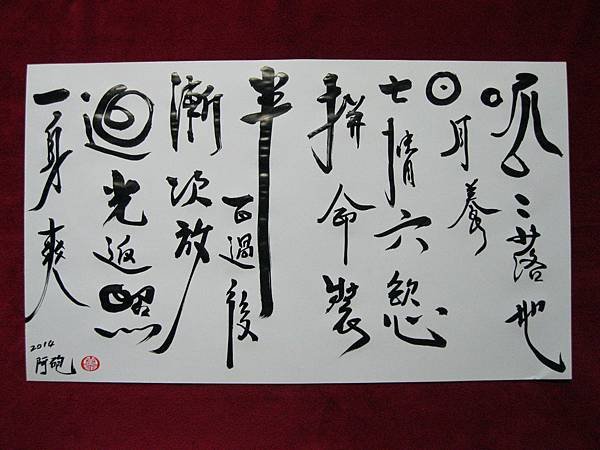 呱〻落地
日月養
七情六慾
拼命裝
半百過後
漸次放
迴光返照
一身爽
2014
阿砲